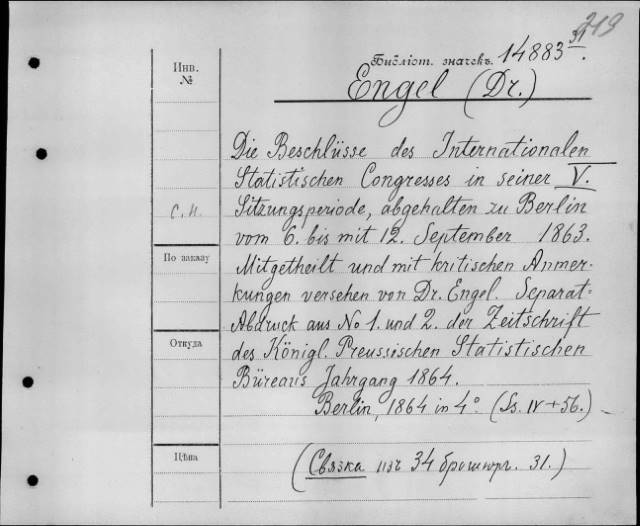 219
Библіот. значекъ. 14883 31/.
Инв.
№
Engel (Dr.)
Die Beschlüsse des Internationalen
Statistischen Congresses in seiner V.
с.н.
Sitzungsperiode, abgehalten zu Berlin
vom 6. bis mit 12. September 1863.
По заказу
Mitgetheilt und mit kritischen Anmer-
kungen versehen von Dr. Engel. Separat-
Abdruck aus No 1. und 2. der Zeitschrift
Откуда
des Königl. Preussischen Statistischen
Büreaus Jahrgang 1864.
Berlin, 1864 in 4º. (Ss. IV + 56.)
Цѣна
(Связка изъ 34 брошюръ. 31.)